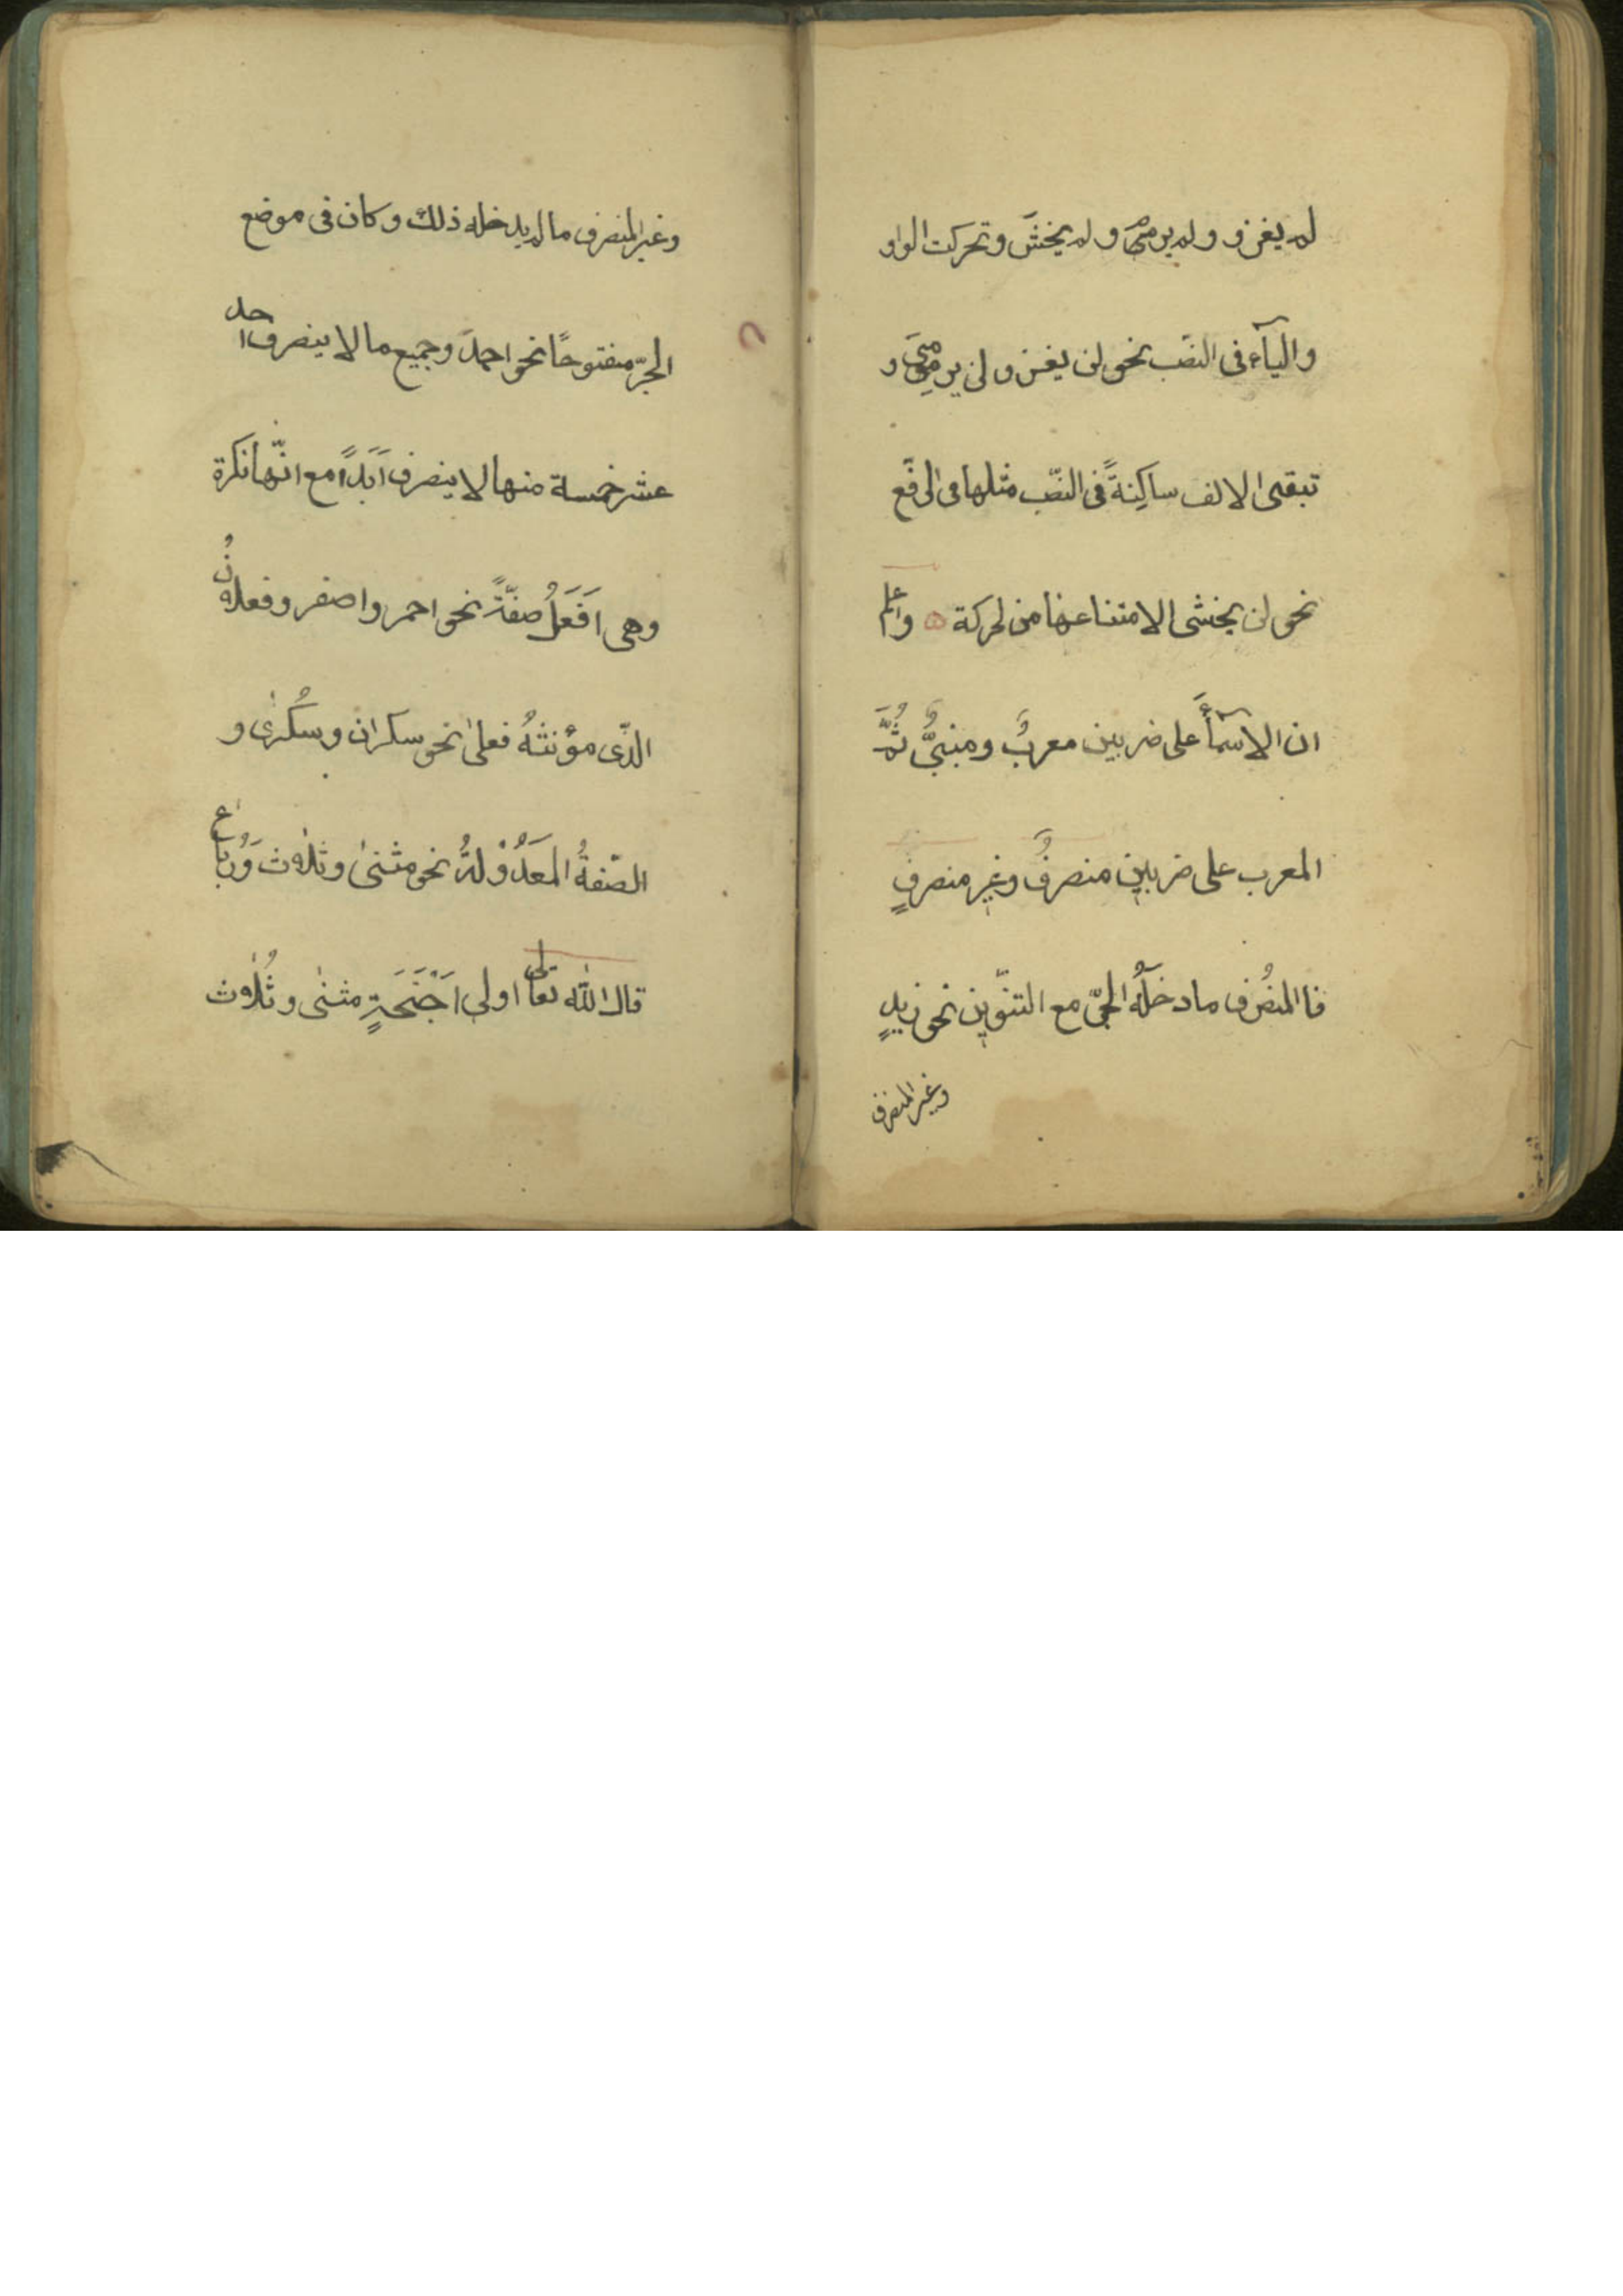 لم يغزو ولم يرمى ولم يخش وتحركت الواو
والياء فى النصب نحو لن يغزو لن يرمى و
تبقى الالف ساكنة فى النصب مثلها فى الرفع
نحو لن يخشى الامتناعها من لحركة واعلم
ان الاسماء على ضربين معرب ومبنى ثم
المعرب على ضربين منصرف وغير منصرف
فا المنصرف ما دخله الجر مع التنوين نحو زيد
وغير المنصرف
وغير المنصرف ما لم يدخله ذلك وكان فى موضع
الجر مفتوحا نحو احمد وجميع ما لا ينصرف احد
عشر خمسة منها لا ينصرف ابدا مع انها نكرة
وهى افعل صفة نحو احمر واصفر وفعلان
الذى مؤنثه فعلى نحو سكران وسكرى و
الصفة المعدولة نحو مثنى وثلاث ورباع
قال الله تعالى اولى اجنحة مثنى وثلاث